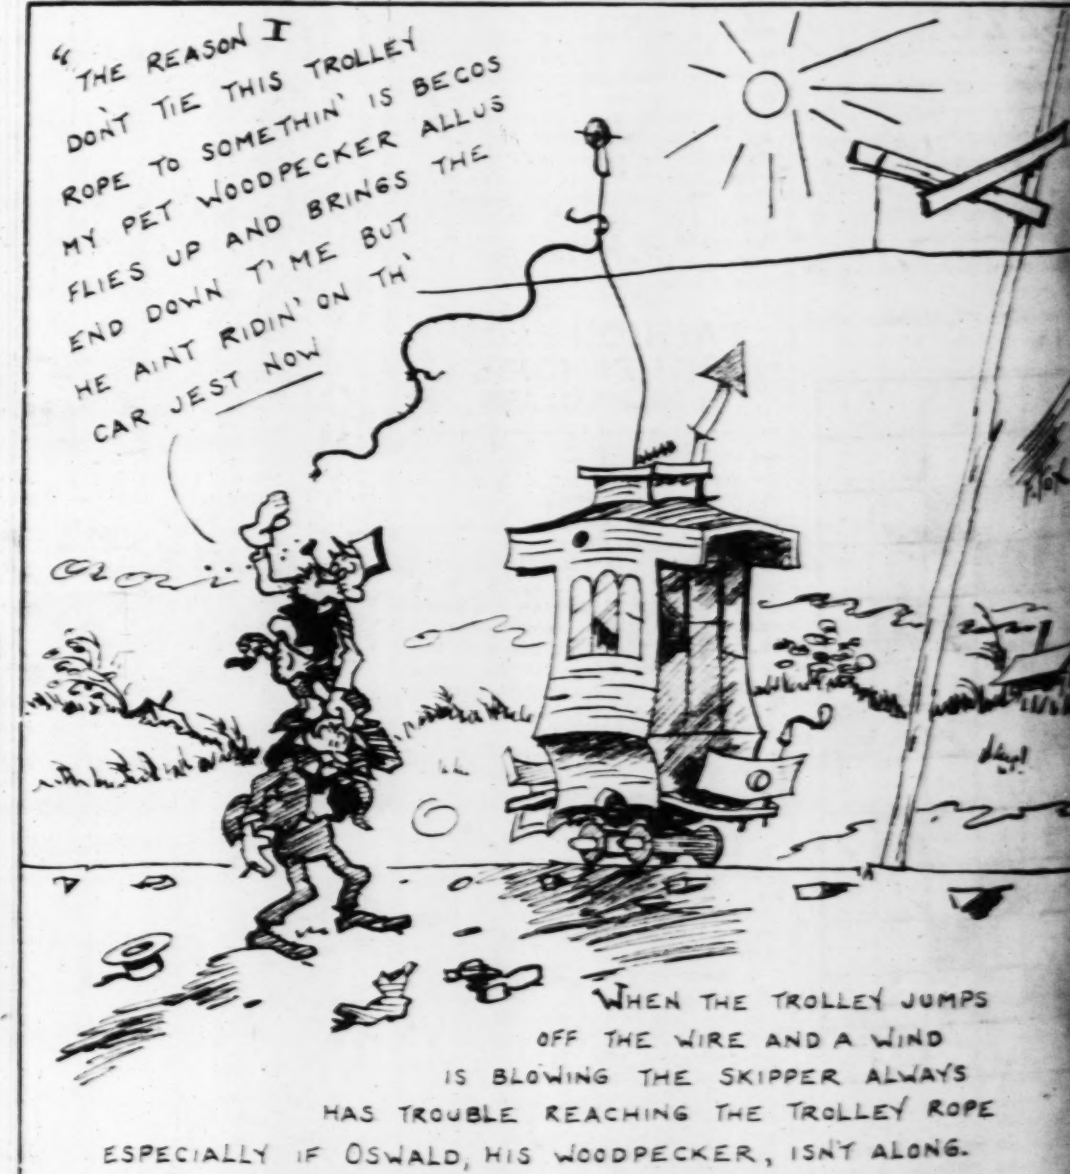 "THE REASON I
DON'T TIE THIS TROLLEY
ROPE TO SOMETHIN' IS BECOS
MY PET WOODPECKER ALLUS
FLIES UP AND BRINGS THE
END DOWN T' ME BUT
HE AINT RIDIN' ON TH'
CAR JEST NOW
WHEN THE TROLLEY JUMPS
OFF THE WIRE AND A WIND
IS BLOWING THE SKIPPER ALWAYS
HAS TROUBLE REACHING THE TROLLEY ROPE
ESPECIALLY IF OSWALD, HIS WOODPECKER, ISN'T ALONG.